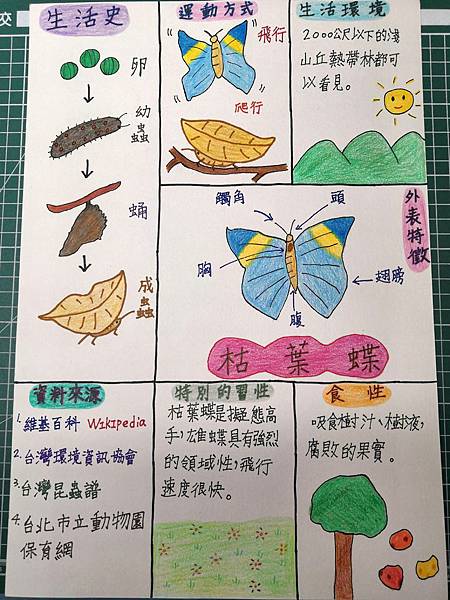 生活史
卵
幼蟲
蛹
成蟲
運動方式
飛行
爬行
生活環境
2000公尺以下的淺
山丘熱帶林都可
以看見。
外表特徵
觸角
頭
胸
翅膀
腹
枯葉蝶
資料來源
1.維基百科 WIKIPEDIA
2.台灣環境資訊協會
3.台灣昆蟲譜
4.台北市立動物園
保育網
特別的習性
枯葉蝶是擬態高
手,雄蝶具有強烈
的領域性,飛行
速度很快。
食性
吸食樹汁、樹液,
腐敗的果實。